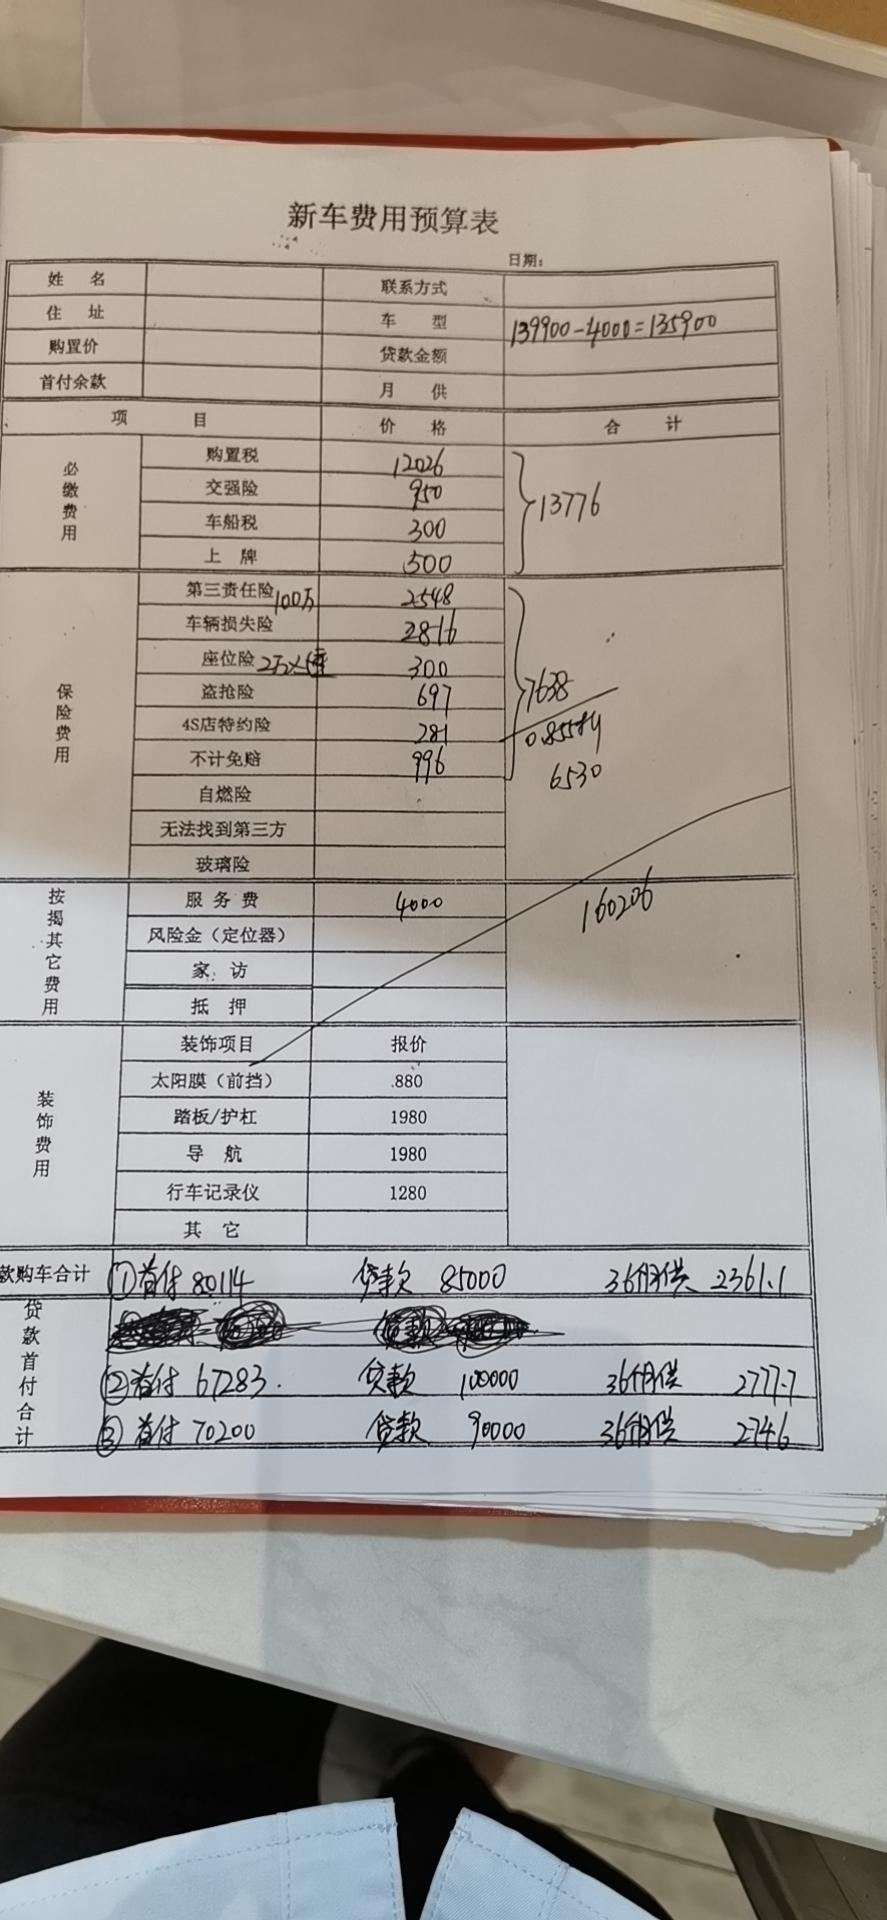 新车费用预算表
日期：
姓 名 联系方式
住 址 车 型 139900-4000=135900
购置价 贷款金额
首付余款 月 供
项 目 价 格 合 计
必缴费用
购置税 12026
交强险 950
车船税 300
上 牌 500
13776
保险费用
第三责任险 100万 2548
车辆损失险 2816
座位险 2万×5座 300
盗抢险 697
4S店特约险 281
不计免赔 996
7638
6530
自燃险
无法找到第三方
玻璃险
按揭其它费用
服 务 费 4000
160206
风险金（定位器）
家 访
抵 押
装饰费用
装饰项目 报价
太阳膜（前挡） 880
踏板/护杠 1980
导 航 1980
行车记录仪 1280
其 它
款购车合计 ①首付 80114 贷款 85000 36个月供 2361.1
贷款首付合计
②首付 67283. 贷款 100000 36个月供 2777.7
③首付 70200 贷款 90000 36个月供 2746